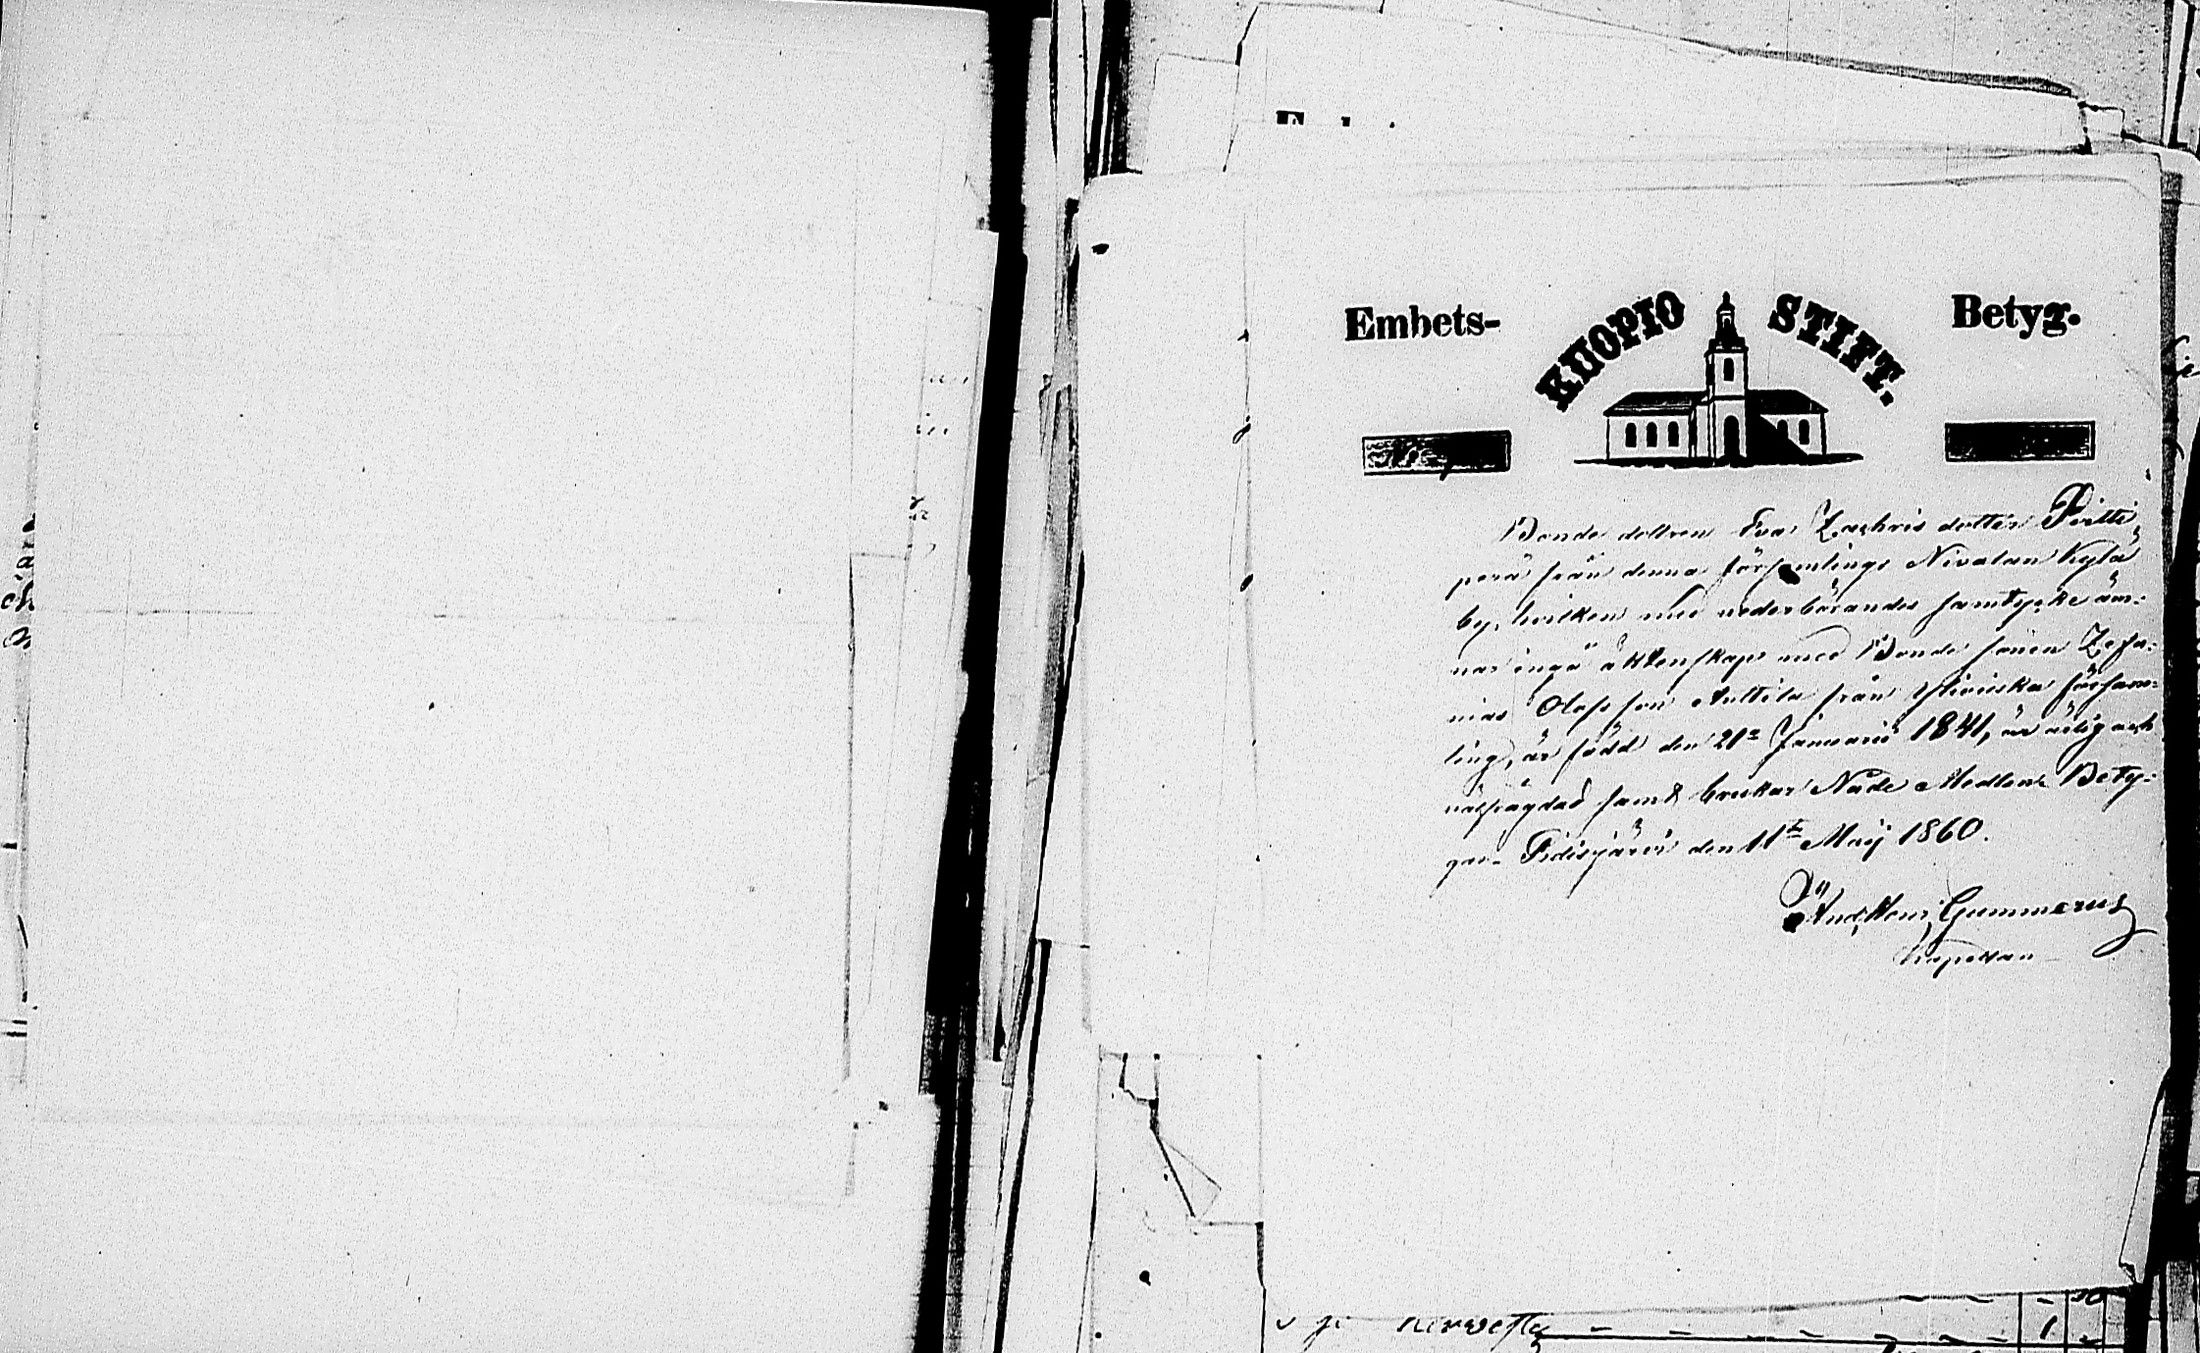 Embets-
KUOPIO STIFT.
Betyg.
Bonde dottren Eva Zachris dotter Pirtti
perä från denna församlings Nivalan Kylä
by, hvilken med vederbörandes samtycke äm-
nar ingå äktenskap med Bonde sonen Zefa-
nias Olofsson Anttila från församl-
ling, är född den 21 Januarii 1841, är ärlig och
välfrägdad samt brukar Nåde Medlen. Bety-
gar. Pidisjärvi den 11te Maij 1860.
And. Henr. Gummerus
Kapellan